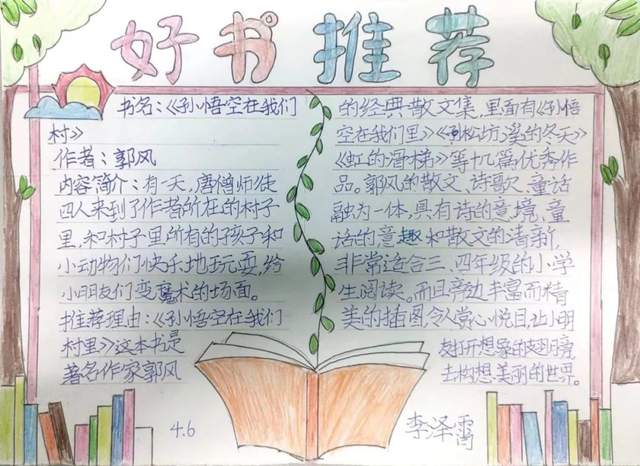 好书推荐
书名：《孙悟空在我们
村》
作者：郭风
内容简介：有一天，唐僧师徒
四人来到了作者所在的村子
里，和村子里所有的孩子和
小动物们快乐地玩耍，给
小朋友们变魔术的场面。
推荐理由：《孙悟空在我们
村里》这本书是
著名作家郭风
的经典散文集，里面有《孙悟
空在我们里》《松坊溪的冬天》
《虹的滑梯》等十几篇优秀作
品。郭风的散文、诗歌、童话
融为一体，具有诗的意境，童
话的意趣和散文的清新，
非常适合三、四年级的小学
生阅读。而且旁边丰富而精
美的插图，令人赏心悦目，让小朋
友打开想象的翅膀，
去构想美丽的世界。
4.6
李泽霄